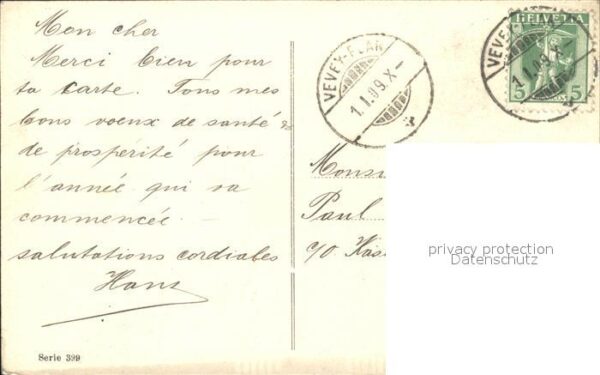 Mon cher
Merci bien pour
ta carte. Tous mes
bons voeux de santé &
de prospérité pour
l'année qui va
commencée
salutations cordiales
Hans
Serie 399
VEVEY-PLAN
1.I.09.X-
HELVETIA
5 5
VEVEY-PLAN
1.I.09.X-
Monsi
Paul
c/o Käs
privacy protection
Datenschutz